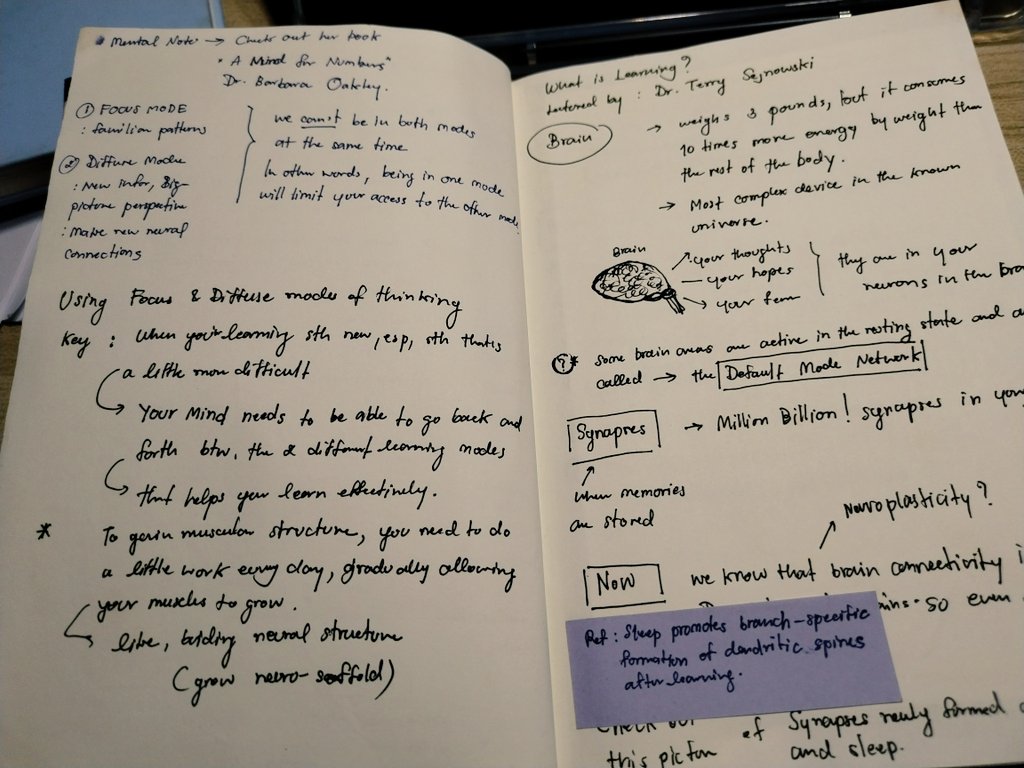 * Mental Note → Check out her book
"A Mind for Numbers"
Dr. Barbara Oakley.
① FOCUS MODE
: familiar patterns
② Diffuse Mode
: New infor, Big-
picture perspective
: make new neural
connections
we can't be in both modes
at the same time
In other words, being in one mode
will limit your access to the other mode.
Using Focus & Diffuse modes of thinking
Key : When you're learning sth new, esp, sth that's
a little more difficult
Your Mind needs to be able to go back and
forth btw. the 2 different learning modes
that helps you learn effectively.
* To gain muscular structure, you need to do
a little work every day, gradually allowing
your muscles to grow.
like, building neural structure
(grow neuro-scaffold)
What is Learning?
Lectured by : Dr. Terry Sejnowski
Brain
→ weighs 3 pounds, but it consumes
10 times more energy by weight than
the rest of the body.
→ Most complex device in the known
universe.
Brain
your thoughts
your hopes
your fear
they are in your
neurons in the
? * Some brain areas are active in the resting state and
called → the Default Mode Network
Synapses → Million Billion! synapses in
when memories
are stored
Neuroplasticity?
Now we know that brain connectivity
so even
Ref : Sleep promotes branch-specific
formation of dendritic spines
after learning.
Check out
this picture of Synapses newly formed
and sleep.